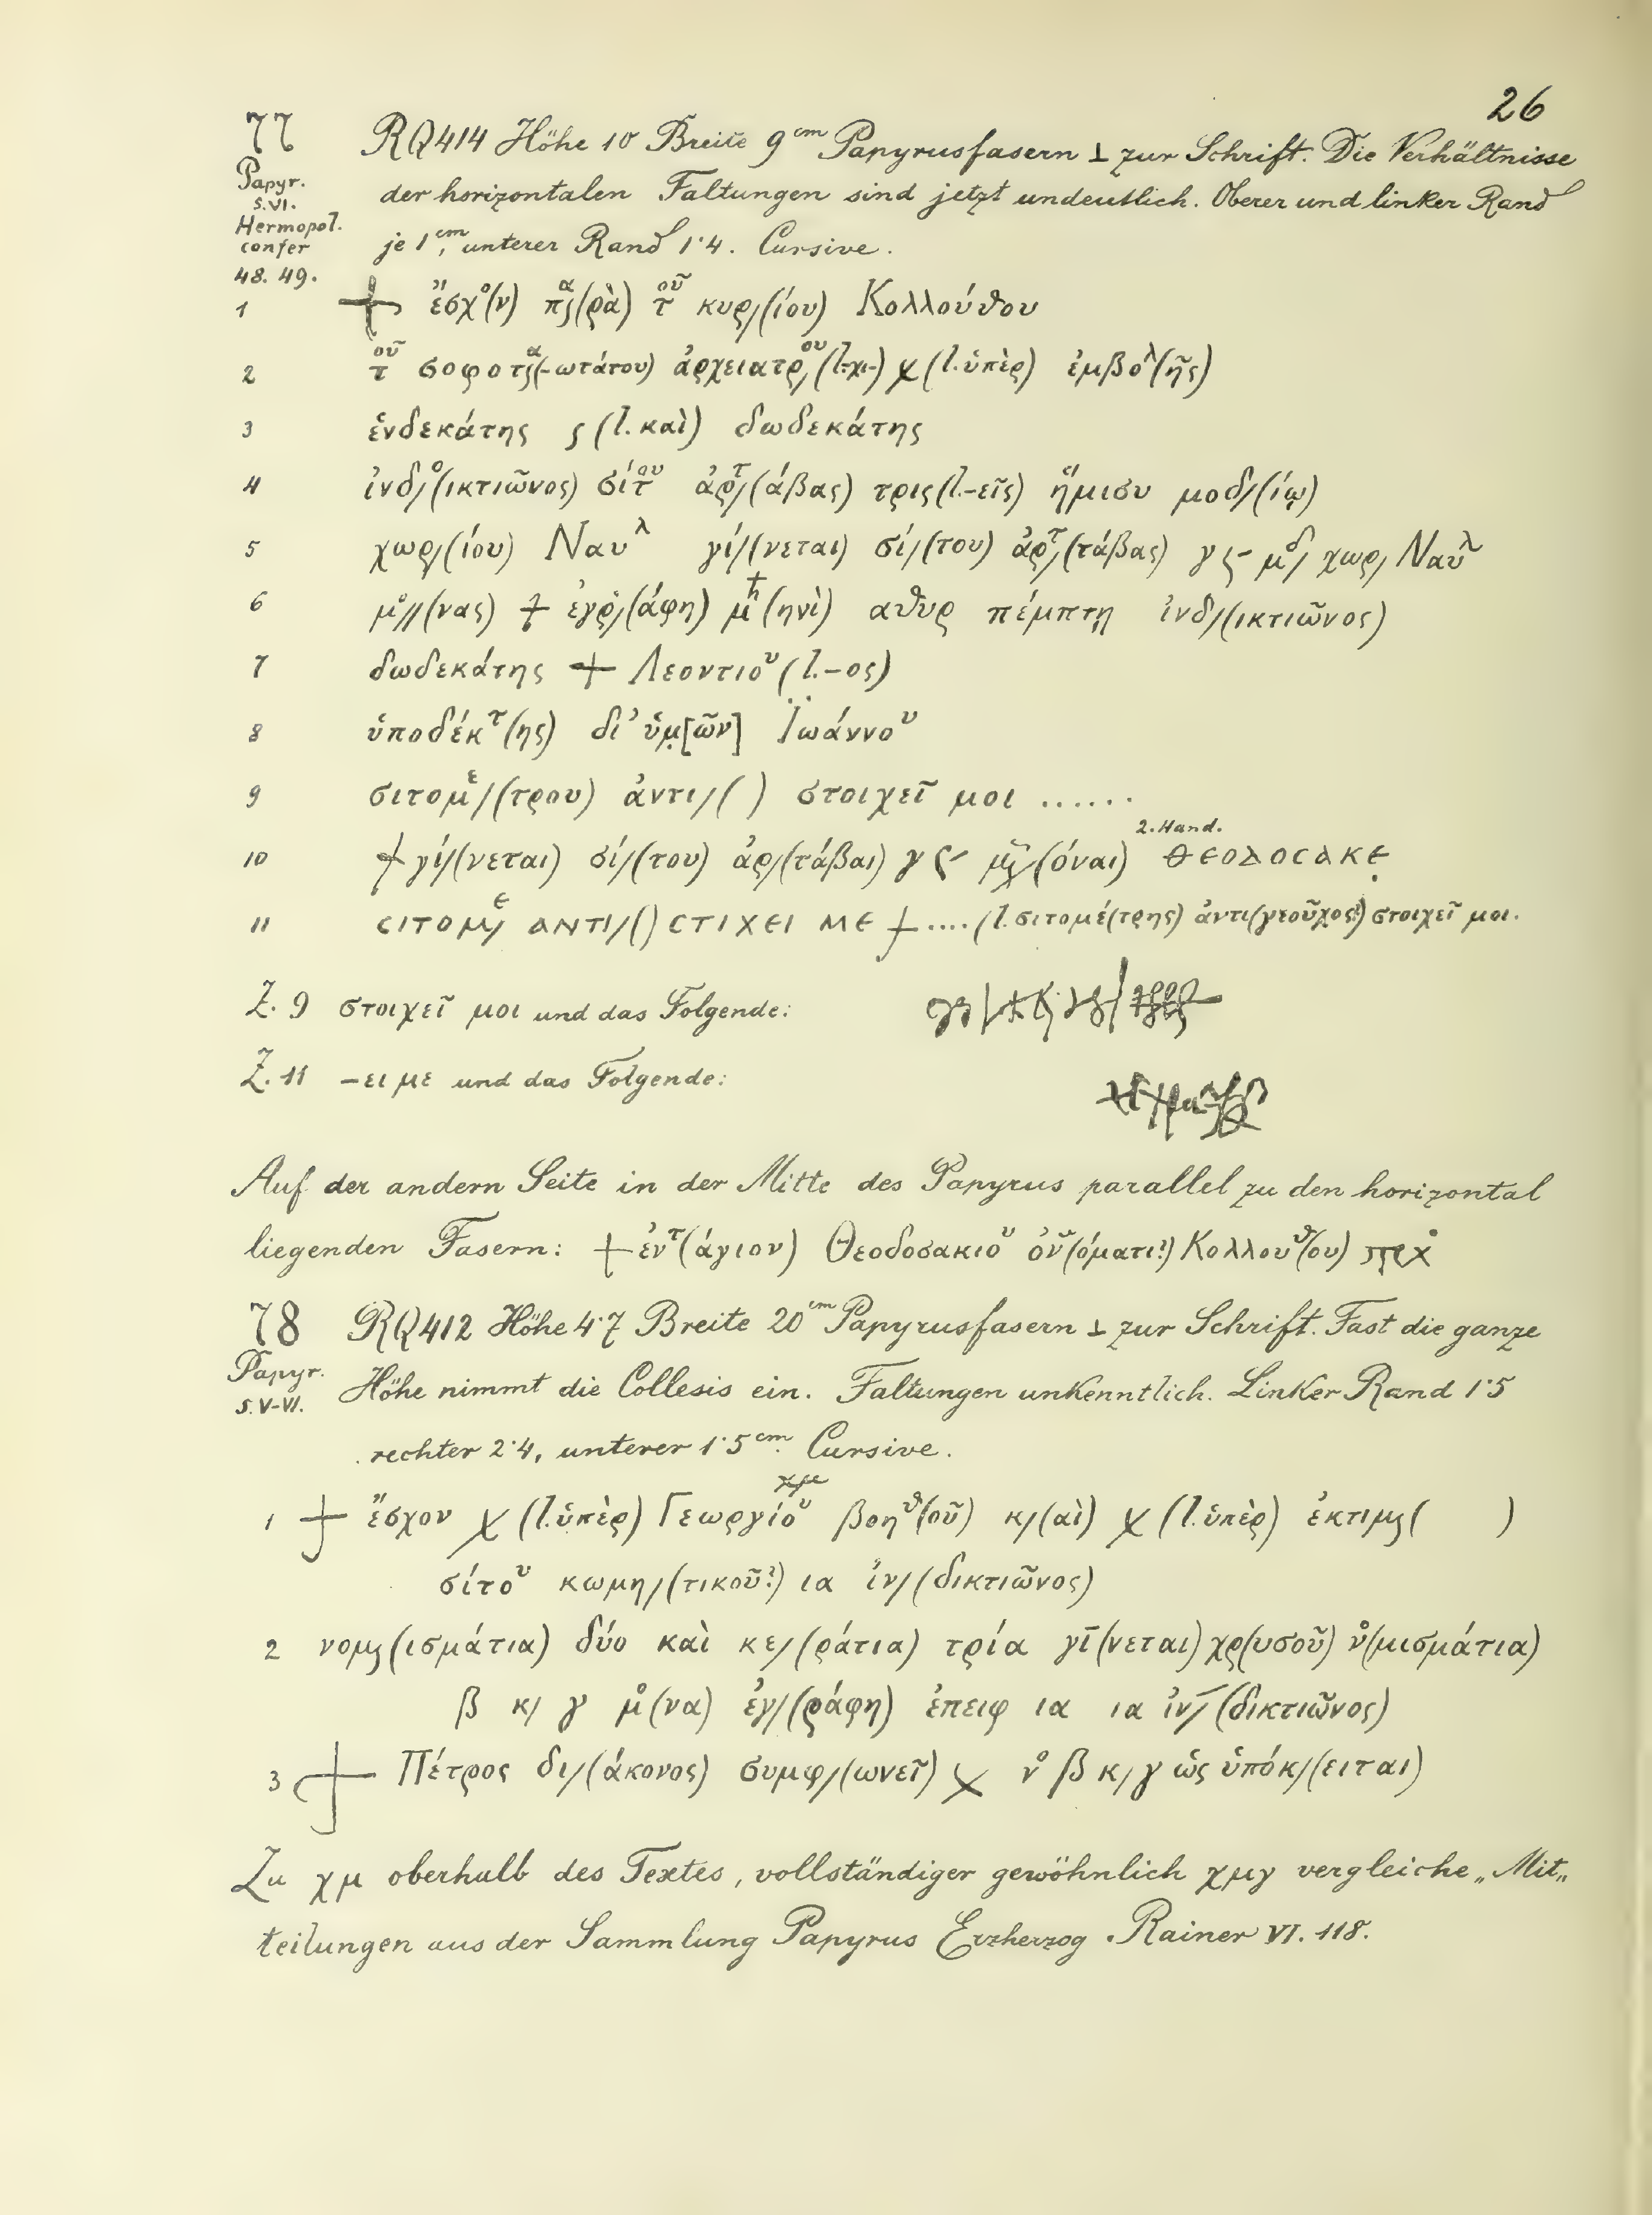 26
77 RQ414 Höhe 10 Breite 9 cm Papyrusfasern ⊥ zur Schrift. Die Verhältnisse
Papyr.
s. VI.
der horizontalen Faltungen sind jetzt undeutlich. Oberer und linker Rand
Hermopol.
confer
je 1 cm, unterer Rand 1·4. Cursive.
48. 49.
1 + ἔσχο(ν) πα(ρὰ) τοῦ κυρ/(ίου) Κολλούθου
2 τοῦ σοφοτα(-ωτάτου) ἀρχειατρου (l.-χι-) χ (l. ὑπὲρ) ἐμβολ(ῆς)
3 ἑνδεκάτης ς (l. καὶ) δωδεκάτης
4 ἰνδ/ο(ικτιῶνος) σίτου ἀρτ/(άβας) τρις (l.-εῖς) ἥμισυ μοδ/(ίῳ)
5 χωρ/(ίου) Ναυλ γί/(νεται) σί/(του) ἀρτ/(τάβας) γ ς- μοδ/ χωρ/ Ναυλ
6 μο//(νας) + ἐγρ/(άφη) μη(ηνὶ) αθυρ πέμπτῃ ἰνδ/(ικτιῶνος)
7 δωδεκάτης + Λεοντιου (l.-ος)
8 ὑποδέκτ(ης) δι' ὑμ̣[ῶν] Ϊωάννου
9 σιτομε/(τρου) ἀντι/( ) στοιχεῖ μοι ......
2. Hand.
10 + γί/(νεται) σί/(του) ἀρ/(τάβαι) γ ς- μ(όναι) ΘΕΟΔΟCΑΚΕ̣
11 CΙΤΟΜΕ/ ΑΝΤΙ/( ) CΤΙΧΕΙ ΜΕ + .... (l. σιτομέ(τρης) ἀντι(γεοῦχος?) στοιχεῖ μοι.
Z. 9 στοιχεῖ μοι und das Folgende:
Z. 11 –ει με und das Folgende:
Auf der andern Seite in der Mitte des Papyrus parallel zu den horizontal
liegenden Fasern: + ἐντ(άγιον) Θεοδοσακιου ὀν(όματι?) Κολλουθ(ου)
78 RQ412 Höhe 4·7 Breite 20 cm Papyrusfasern ⊥ zur Schrift. Fast die ganze
Papyr.
s. V-VI.
Höhe nimmt die Collesis ein. Faltungen unkenntlich. Linker Rand 1·5
rechter 2·4, unterer 1·5 cm. Cursive.
χμ
1 + ἔσχον χ (l. ὑπὲρ) Γεωργίου βοηθ(οῦ) κ/(αὶ) χ (l. ὑπὲρ) ἐκτιμς( )
σίτου κωμη/(τικοῦ?) ια ἰν/(δικτιῶνος)
2 νομς(ισμάτια) δύο καὶ κε/(ράτια) τρία γί(νεται) χρ(υσοῦ) νο(μισμάτια)
β κ/ γ μο(να) ἐγ/(ράφη) ἐπειφ ια ια ἰν/(δικτιῶνος)
3 + Πέτρος δι/(άκονος) συμφ/(ωνεῖ) χ νο β κ/ γ ὡς ὑπόκ/(ειται)
Zu χμ oberhalb des Textes, vollständiger gewöhnlich χμγ vergleiche „Mit„
teilungen aus der Sammlung Papyrus Erzherzog Rainer VI. 118.